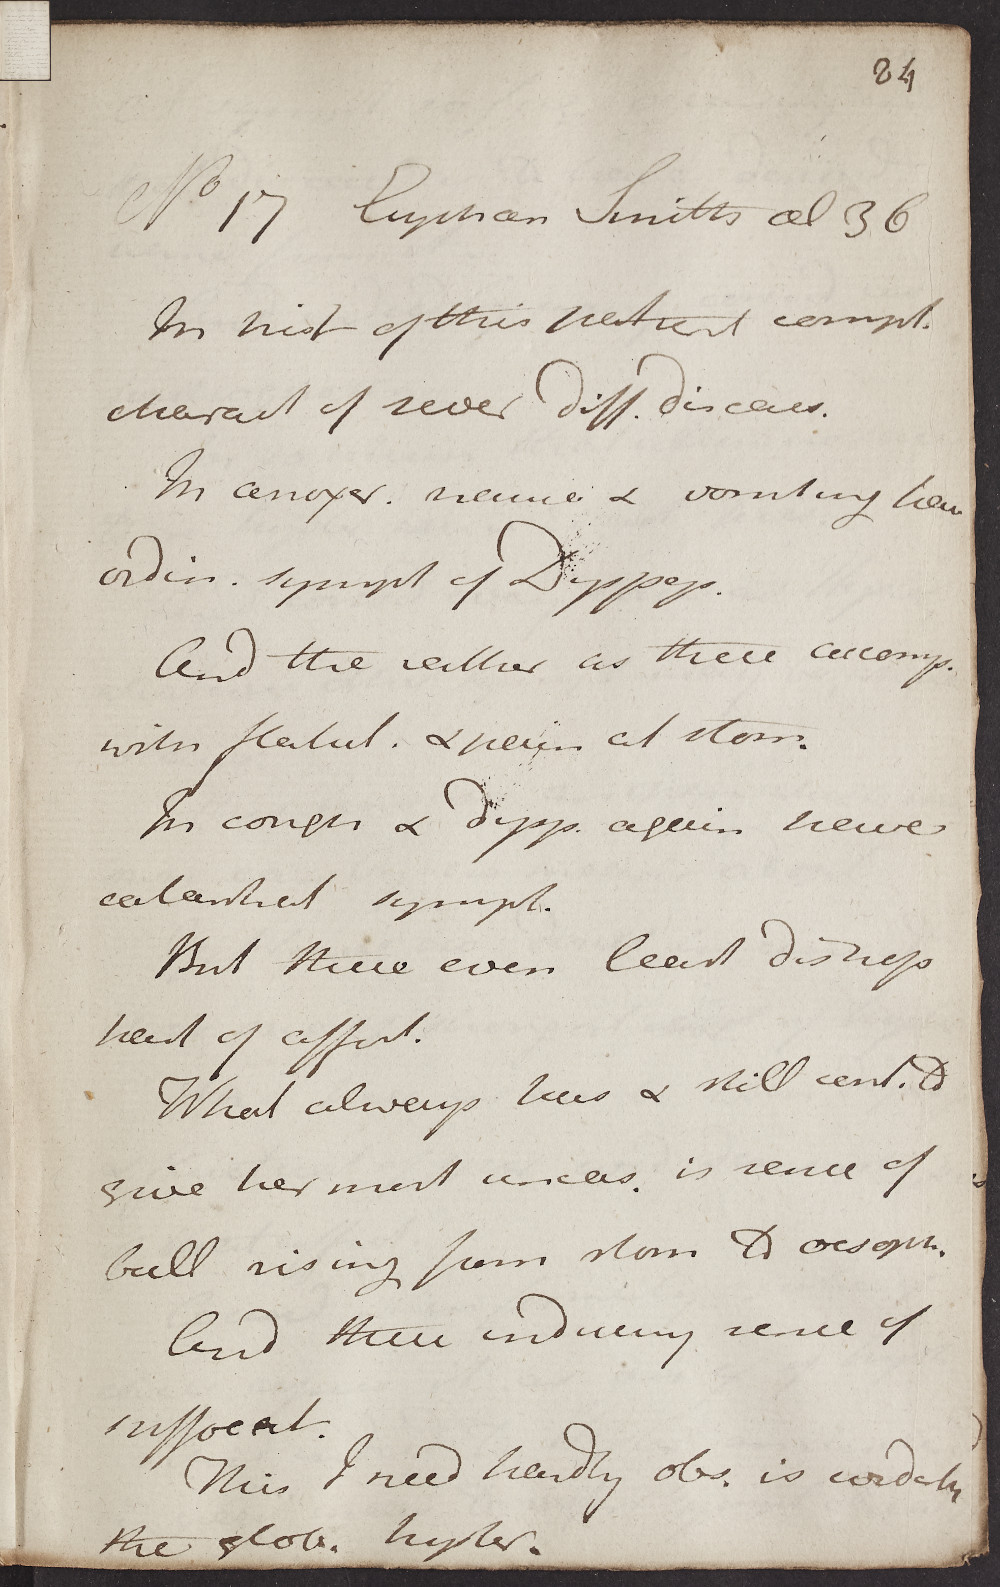 24
No 17 Euphan Smith æt 36
In hist of this patient compl.
charact of sever diff. diseases.
In anorex. nausea & vomiting have
ordin. sympt of Dyspep.
And the rather as these accomp.
with flatul. & pain at stom.
In cough & dysp. again have
catarrhal sympt.
But these even least distress
part of affect.
What always has & still cont. to
give her most uneas. is sense of
ball rising from stom to oesoph.
And there inducing sense of
suffocat.
This I need hardly obs. is
the glob. hyster.